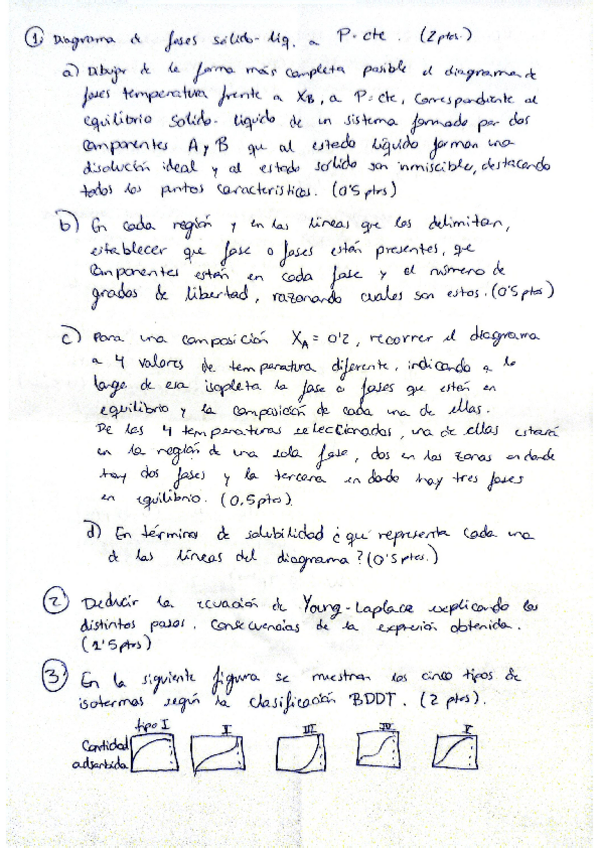 ① Diagrama de fases sólido-liq. a P=cte. (2 ptos.)
a) Dibujar de la forma más completa posible el diagrama de
fases temperatura frente a XB, a P=cte, correspondiente al
equilibrio sólido-líquido de un sistema formado por dos
componentes A y B que al estado líquido forman una
disolución ideal y al estado sólido son inmiscible, destacando
todos los puntos característicos. (0'5 ptos)
b) En cada región y en las líneas que los delimitan,
establecer que fase o fases están presentes, que
componentes están en cada fase y el número de
grados de libertad, razonando cuales son estos. (0'5 ptos)
c) Para una composición XA = 0'2, recorrer el diagrama
a 4 valores de temperatura diferente, indicando a lo
largo de esa isopleta la fase o fases que están en
equilibrio y la composición de cada una de ellas.
De las 4 temperaturas seleccionadas, una de ellas estará
en la región de una sola fase, dos en las zonas en donde
hay dos fases y la tercera en donde hay tres fases
en equilibrio. (0,5 ptos).
d) En términos de solubilidad ¿qué representa cada una
de las líneas del diagrama? (0'5 ptos.)
② Deducir la ecuación de Young-Laplace explicando los
distintos pasos. Consecuencias de la expresión obtenida.
(1'5 ptos)
③ En la siguiente figura se muestran los cinco tipos de
isotermas según la clasificación BDDT. (2 ptos).
tipo I II III IV V
Cantidad
adsorbida